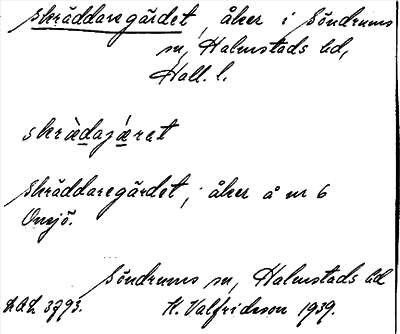 skräddaregärdet, åker i Söndrums
sn, Halmstads hd,
Hall. l.
skrædajærat
skräddaregärdet, åker å nr 6
Onsjö.
Söndrums sn, Halmstads hd
DAL 3793. H. Valfridsson 1939.